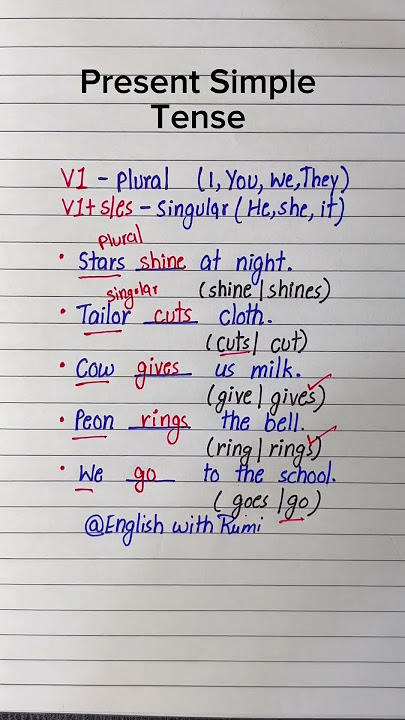 Present Simple
Tense
V1 - Plural (I, You, We, They)
V1+ s/es - Singular (He, she, it)
Plural
• Stars shine at night.
(shine | shines)
singular
• Tailor cuts cloth.
(cuts | cut)
• Cow gives us milk.
(give | gives)
• Peon rings the bell.
(ring | rings)
• We go to the school.
(goes | go)
@English with Rumi